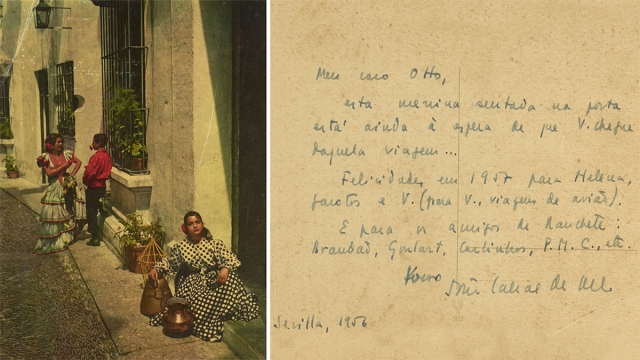 Meu caro Otto,
esta menina sentada na porta
está ainda à espera de que V. chegue
daquela viagem...
Felicidades em 1957 para Helena,
garotos e V. (para V., viagens de avião).
E para os amigos de Manchete:
Brandão, Goulart, Carlinhos, P.M.C., etc.
João Cabral de Mel.
Sevilla, 1956